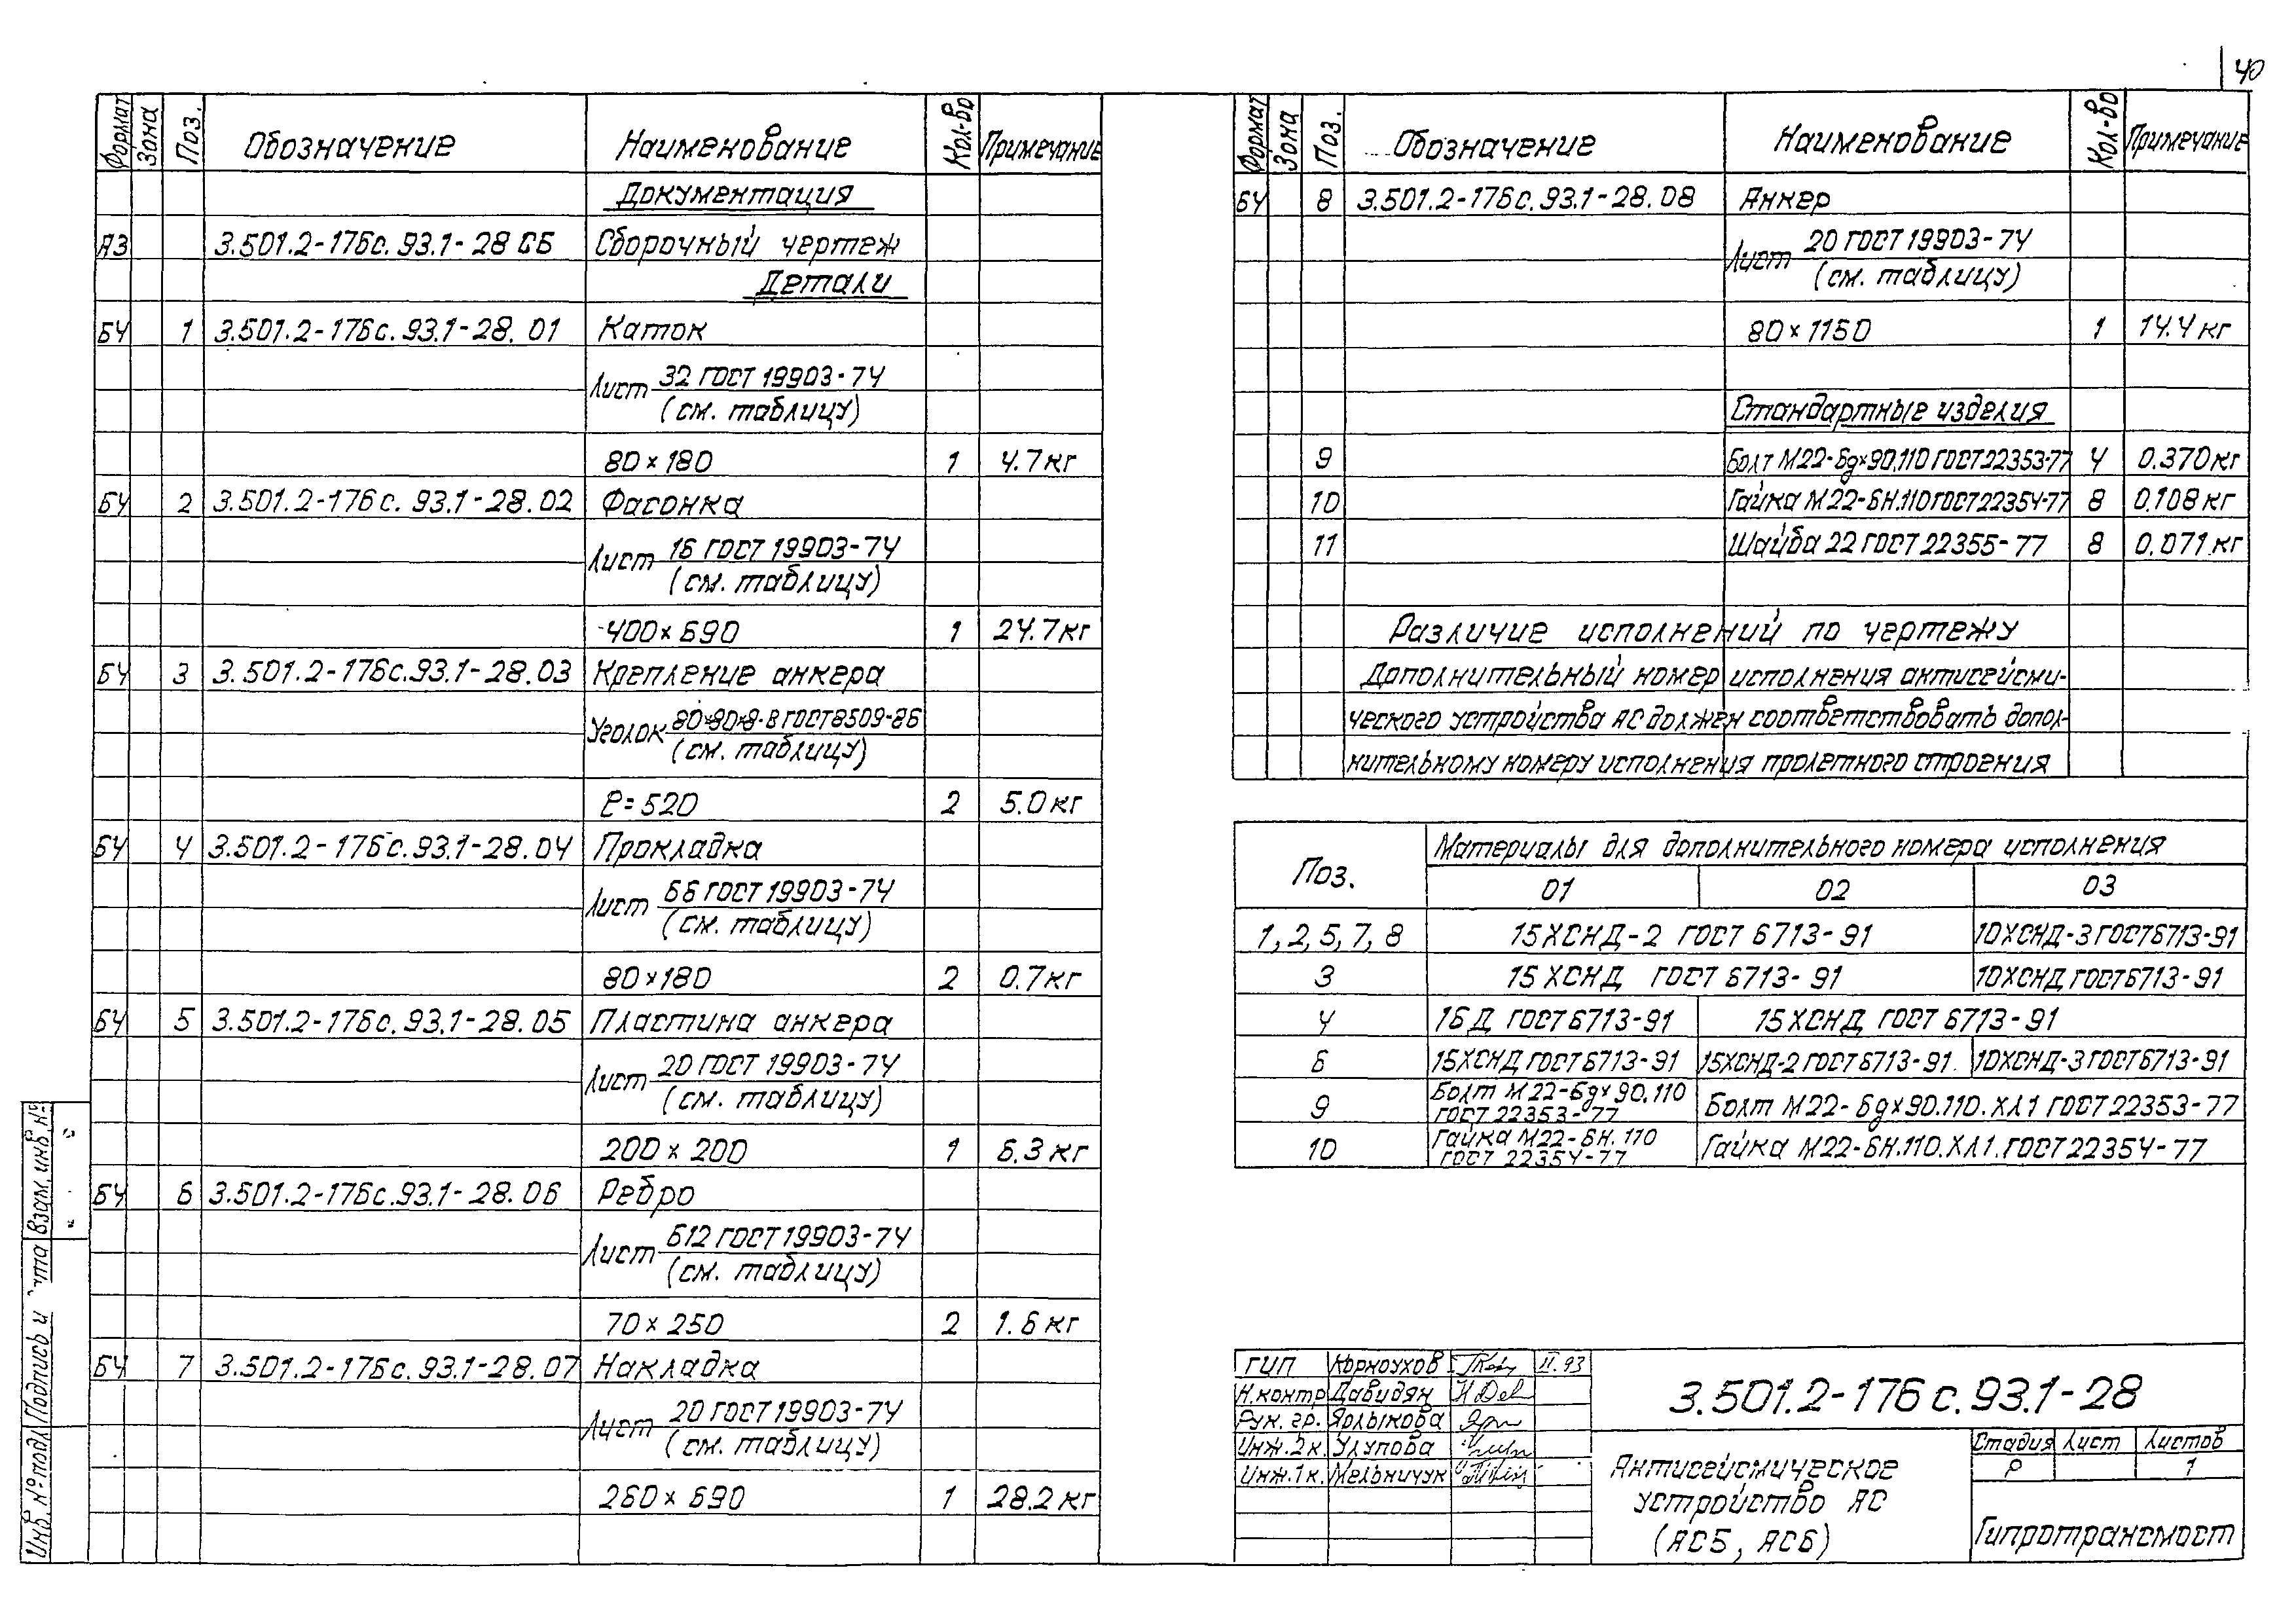 40
Формат Зона Поз. Обозначение Наименование Кол-во Примечание
Документация
А3 3.501.2-176с.93.1-28 СБ Сборочный чертеж
Детали
БЧ 1 3.501.2-176с.93.1-28.01 Каток
Лист 32 ГОСТ 19903-74
(см. таблицу)
80×180 1 4.7кг
БЧ 2 3.501.2-176с.93.1-28.02 Фасонка
Лист 16 ГОСТ 19903-74
(см. таблицу)
400×690 1 24.7кг
БЧ 3 3.501.2-176с.93.1-28.03 Крепление анкера
Уголок 80×80×8-В ГОСТ 8509-86
(см. таблицу)
ℓ=520 2 5.0кг
БЧ 4 3.501.2-176с.93.1-28.04 Прокладка
Лист Б6 ГОСТ 19903-74
(см. таблицу)
80×180 2 0.7кг
БЧ 5 3.501.2-176с.93.1-28.05 Пластина анкера
Лист 20 ГОСТ 19903-74
(см. таблицу)
200×200 1 6.3кг
БЧ 6 3.501.2-176с.93.1-28.06 Ребро
Лист Б12 ГОСТ 19903-74
(см. таблицу)
70×250 2 1.6кг
БЧ 7 3.501.2-176с.93.1-28.07 Накладка
Лист 20 ГОСТ 19903-74
(см. таблицу)
260×690 1 28.2кг
Формат Зона Поз. Обозначение Наименование Кол-во Примечание
БЧ 8 3.501.2-176с.93.1-28.08 Анкер
Лист 20 ГОСТ 19903-74
(см. таблицу)
80×1150 1 14.4кг
Стандартные изделия
9 Болт М22-6g×90.110 ГОСТ 22353-77 4 0.370кг
10 Гайка М22-6Н.110 ГОСТ 22354-77 8 0.108кг
11 Шайба 22 ГОСТ 22355-77 8 0.071кг
Различие исполнений по чертежу
Дополнительный номер исполнения антисейсми-
ческого устройства АС должен соответствовать допол-
нительному номеру исполнения пролетного строения
Поз. Материалы для дополнительного номера исполнения
01 02 03
1, 2, 5, 7, 8 15ХСНД-2 ГОСТ 6713-91 10ХСНД-3 ГОСТ 6713-91
3 15ХСНД ГОСТ 6713-91 10ХСНД ГОСТ 6713-91
4 16Д ГОСТ 6713-91 15ХСНД ГОСТ 6713-91
6 15ХСНД ГОСТ 6713-91 15ХСНД-2 ГОСТ 6713-91. 10ХСНД-3 ГОСТ 6713-91
9 Болт М22-6g×90.110 ГОСТ 22353-77 Болт М22-6g×90.110.ХЛ1 ГОСТ 22353-77
10 Гайка М22-6Н.110 ГОСТ 22354-77 Гайка М22-6Н.110.ХЛ1.ГОСТ 22354-77
ГИП Корноухов II.93
Н.контр. Давидян
Рук. гр. Ярлыкова
Инж.2к. Улупова
Инж.1к. Мельничук
3.501.2-176с.93.1-28
Антисейсмическое
устройство АС
(АС5, АС6)
Стадия Лист Листов
Р 1
Гипротрансмост
Взам. инв. №
Подпись и
Инв. № подл.